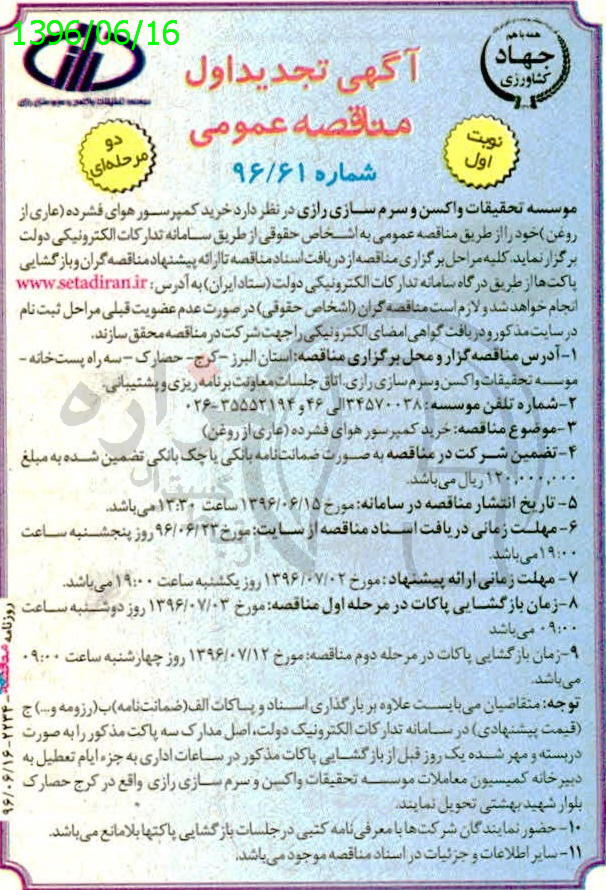 1396/06/16
همه با هم
جهاد
کشاورزی
آگهی تجدید اول
مناقصه عمومی
شماره ۹۶/۶۱
دو
مرحله‌ای
نوبت
اول
موسسه تحقیقات واکسن و سرم سازی رازی در نظر دارد خرید کمپرسور هوای فشرده (عاری از
روغن) خود را از طریق مناقصه عمومی به اشخاص حقوقی از طریق سامانه تدارکات الکترونیکی دولت
برگزار نماید. کلیه مراحل برگزاری مناقصه از دریافت اسناد مناقصه تا ارائه پیشنهاد مناقصه گران و بازگشایی
پاکت‌ها از طریق درگاه سامانه تدارکات الکترونیکی دولت (ستاد ایران) به آدرس: www.setadiran.ir
انجام خواهد شد و لازم است مناقصه گران (اشخاص حقوقی) در صورت عدم عضویت قبلی مراحل ثبت نام
در سایت مذکور و دریافت گواهی امضای الکترونیکی را جهت شرکت در مناقصه محقق سازند.
۱-آدرس مناقصه گزار و محل برگزاری مناقصه: استان البرز -کرج- حصارک -سه راه پست خانه-
موسسه تحقیقات واکسن و سرم سازی رازی، اتاق جلسات معاونت برنامه ریزی و پشتیبانی.
۲-شماره تلفن موسسه: ۳۴۵۷۰۰۳۸ الی ۴۶ و ۳۵۵۵۲۱۹۴-۰۲۶
۳-موضوع مناقصه: خرید کمپرسور هوای فشرده (عاری از روغن)
۴-تضمین شرکت در مناقصه به صورت ضمانت‌نامه بانکی یا چک بانکی تضمین شده به مبلغ
۱۲۰,۰۰۰,۰۰۰ ریال می‌باشد.
۵- تاریخ انتشار مناقصه در سامانه: مورخ ۱۳۹۶/۰۶/۱۵ ساعت ۱۲:۳۰ می‌باشد.
۶- مهلت زمانی دریافت اسناد مناقصه از سایت: مورخ ۹۶/۰۶/۲۳ روز پنجشنبه ساعت
۱۹:۰۰ می‌باشد.
۷- مهلت زمانی ارائه پیشنهاد: مورخ ۱۳۹۶/۰۷/۰۲ روز یکشنبه ساعت ۱۹:۰۰ می‌باشد.
۸-زمان بازگشایی پاکات در مرحله اول مناقصه: مورخ ۱۳۹۶/۰۷/۰۳ روز دوشنبه ساعت
۰۹:۰۰ می‌باشد
۹-زمان بازگشایی پاکات در مرحله دوم مناقصه: مورخ ۱۳۹۶/۰۷/۱۲ روز چهارشنبه ساعت ۰۹:۰۰
می‌باشد.
توجه: متقاضیان می‌بایست علاوه بر بارگذاری اسناد و پاکات الف(ضمانت‌نامه)ب(رزومه و...) ج
(قیمت پیشنهادی) در سامانه تدارکات الکترونیک دولت، اصل مدارک سه پاکت مذکور را به صورت
دربسته و مهر شده یک روز قبل از بازگشایی پاکات مذکور در ساعات اداری به جزء ایام تعطیل به
دبیرخانه کمیسیون معاملات موسسه تحقیقات واکسن و سرم سازی رازی واقع در کرج حصارک
بلوار شهید بهشتی تحویل نمایند.
۱۰- حضور نمایندگان شرکت‌ها با معرفی‌نامه کتبی در جلسات بازگشایی پاکتها بلامانع می‌باشد.
۱۱- سایر اطلاعات و جزئیات در اسناد مناقصه موجود می‌باشد.
روزنامه مناقصه - ۲۲۳۴ - ۹۶/۰۶/۱۶